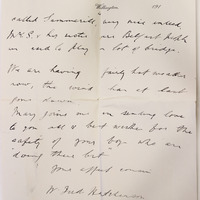 Wellington 191
called Summerville very nice indeed
Mrs S & his mother are Belfast people
we used to play a lot of bridge.
We are having fairly hot weather
now, this would be at
your
Mary joins me in sending love
to you all & best wishes for the
safety of your boys who are
doing their bit
Your affect cousin
W. Fred